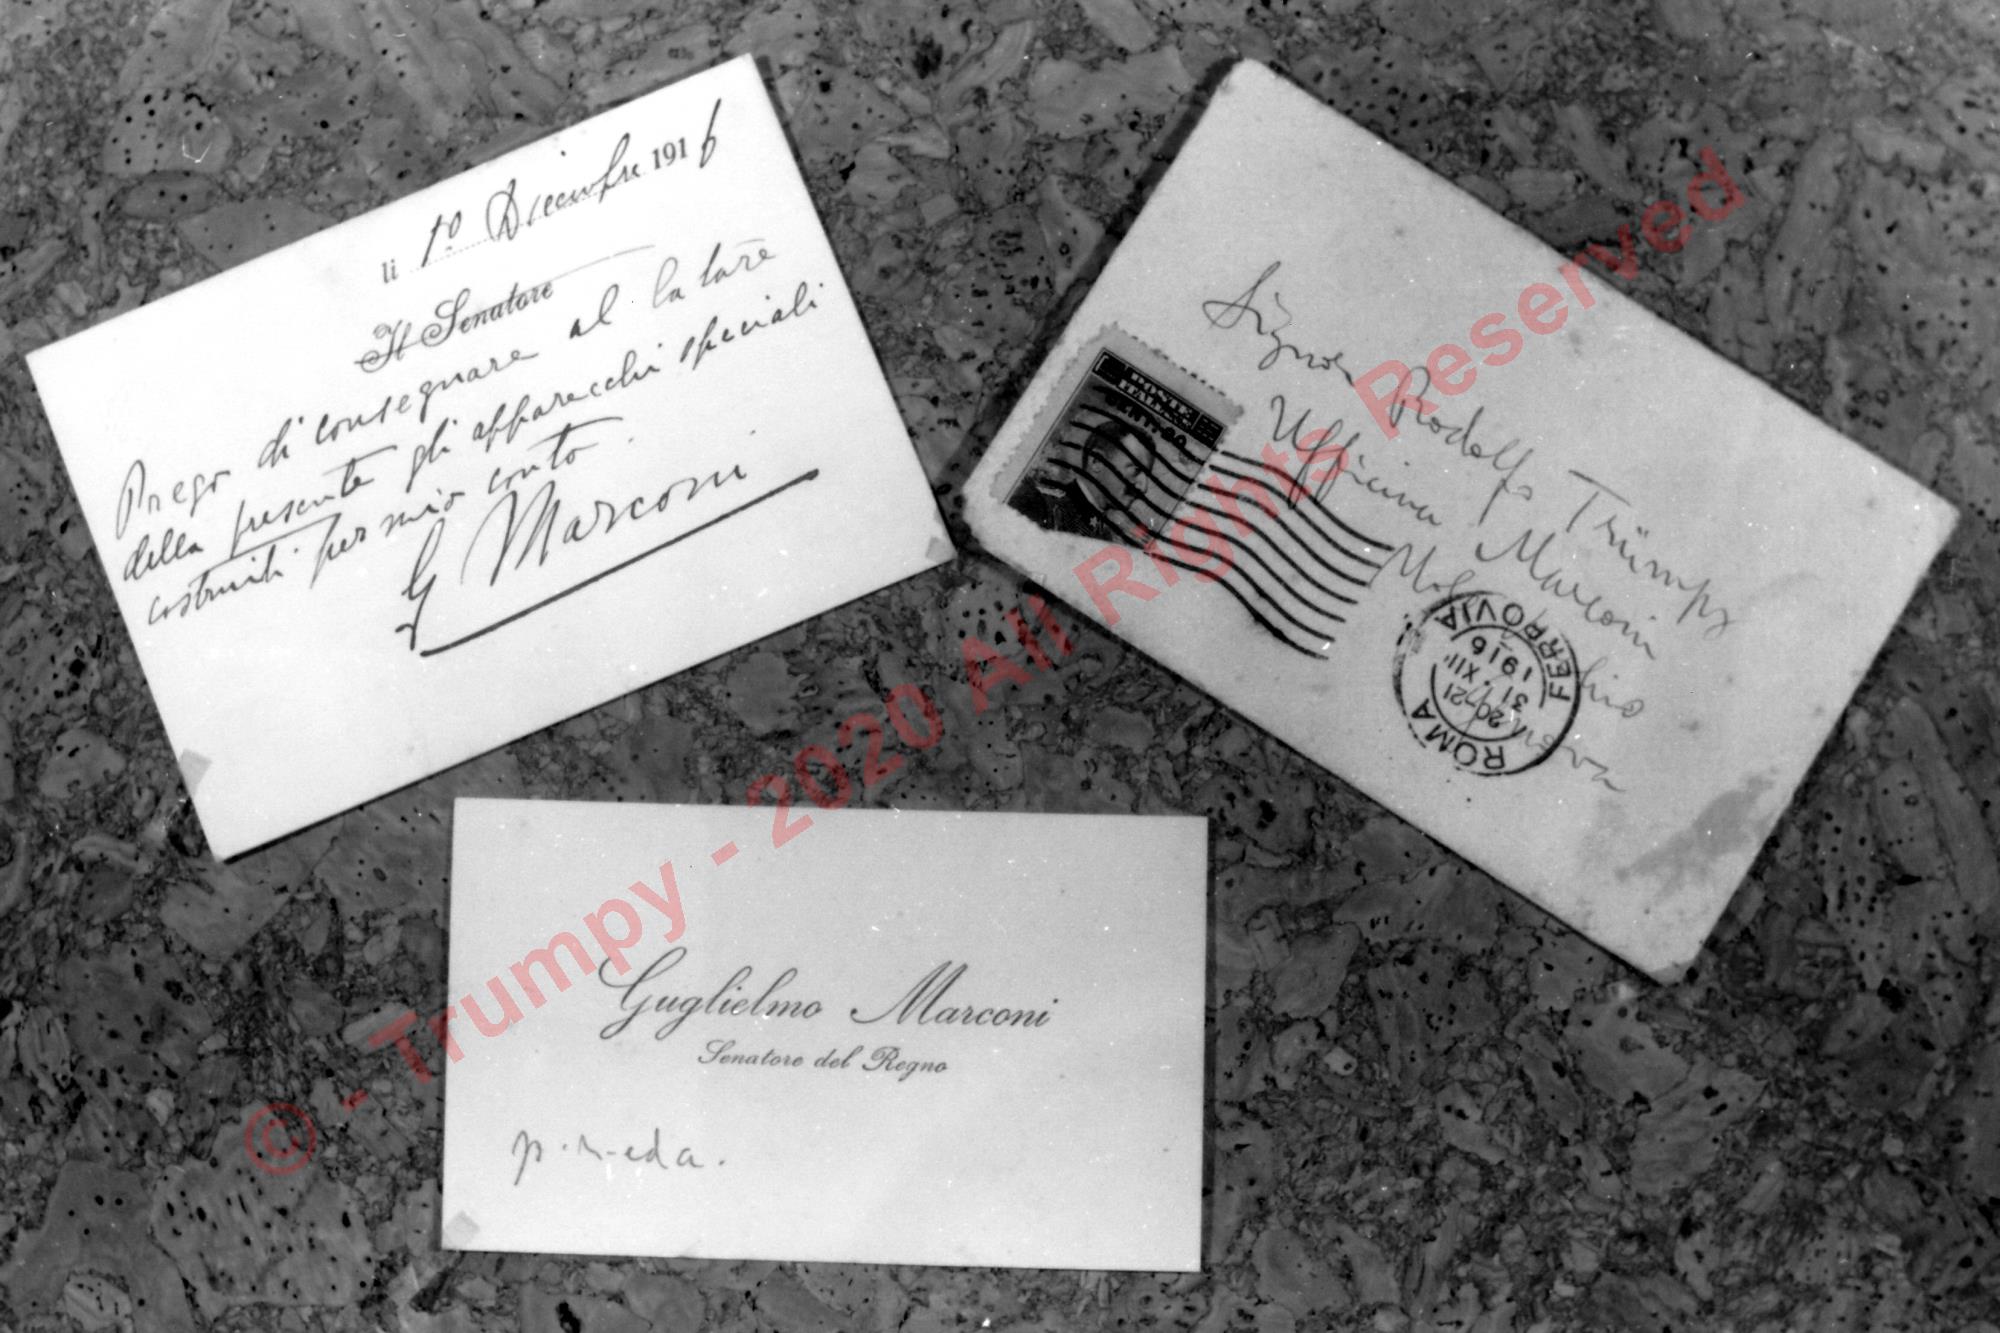 li 1º Dicembre 1916
Il Senatore
Prego di consegnare al latore
della presente gli apparecchi speciali
costruiti per mio conto
G Marconi
POSTE
ITALIANE
CENT. 20
Signor Rodolfo Trümpy
Officina Marconi
ROMA FERROVIA
20-21
31. XII
1916
Guglielmo Marconi
Senatore del Regno
© - Trumpy - 2020 All Rights Reserved